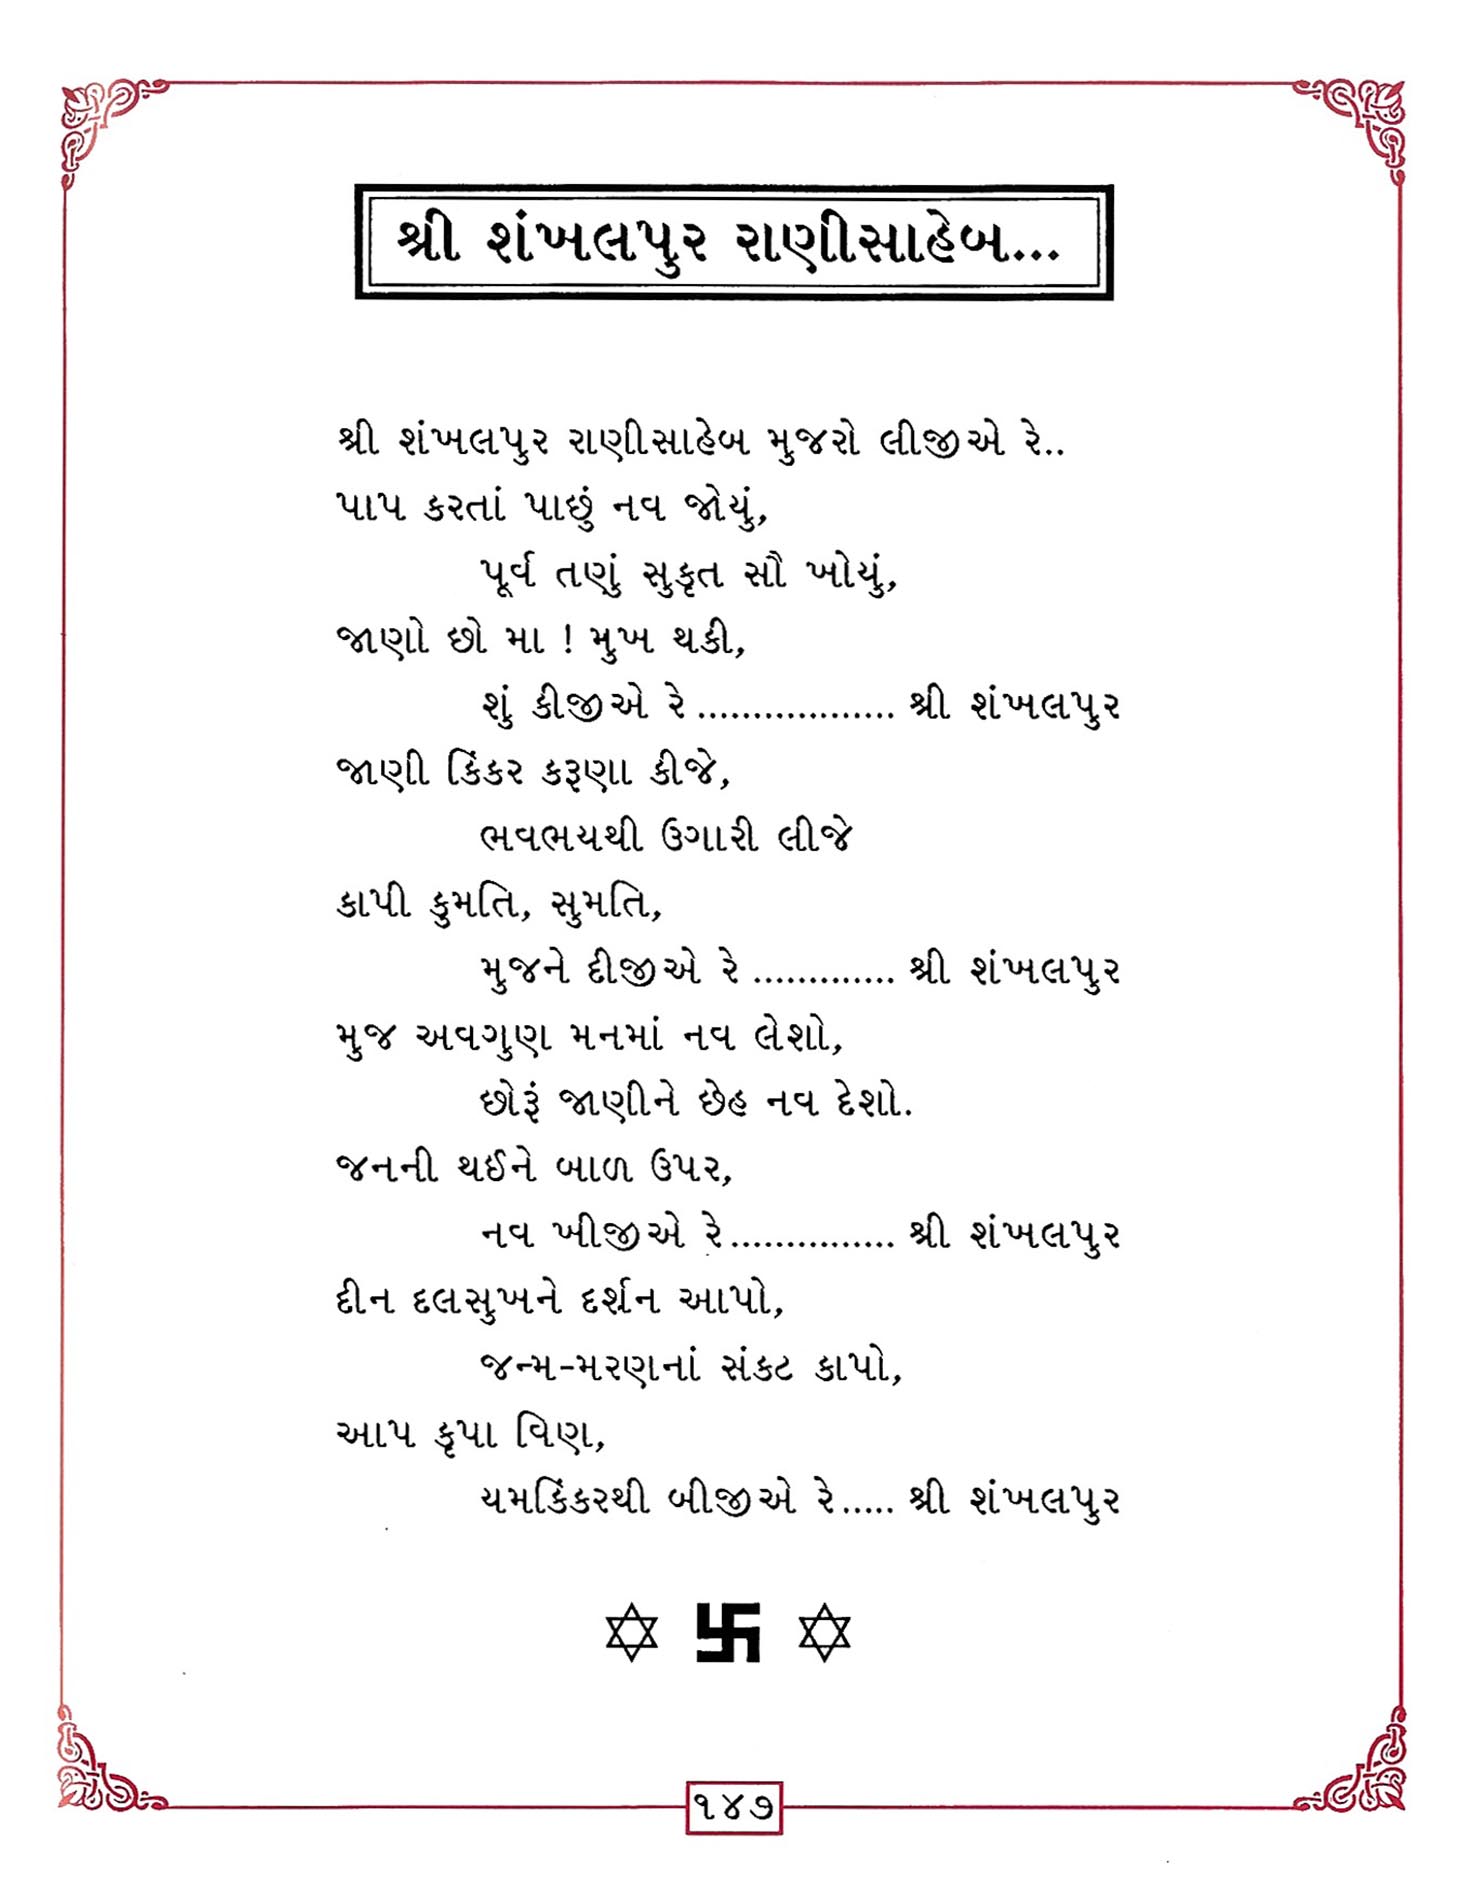 શ્રી શંખલપુર રાણીસાહેબ...
શ્રી શંખલપુર રાણીસાહેબ મુજરો લીજીએ રે..
પાપ કરતાં પાછું નવ જોયું,
પૂર્વ તણું સુકૃત સૌ ખોયું,
જાણો છો મા ! મુખ થકી,
શું કીજીએ રે .................. શ્રી શંખલપુર
જાણી કિંકર કરૂણા કીજે,
ભવભયથી ઉગારી લીજે
કાપી કુમતિ, સુમતિ,
મુજને દીજીએ રે ............. શ્રી શંખલપુર
મુજ અવગુણ મનમાં નવ લેશો,
છોરૂં જાણીને છેહ નવ દેશો.
જનની થઈને બાળ ઉપર,
નવ ખીજીએ રે............... શ્રી શંખલપુર
દીન દલસુખને દર્શન આપો,
જન્મ-મરણનાં સંકટ કાપો,
આપ કૃપા વિણ,
યમકિંકરથી બીજીએ રે..... શ્રી શંખલપુર
૧૪૭